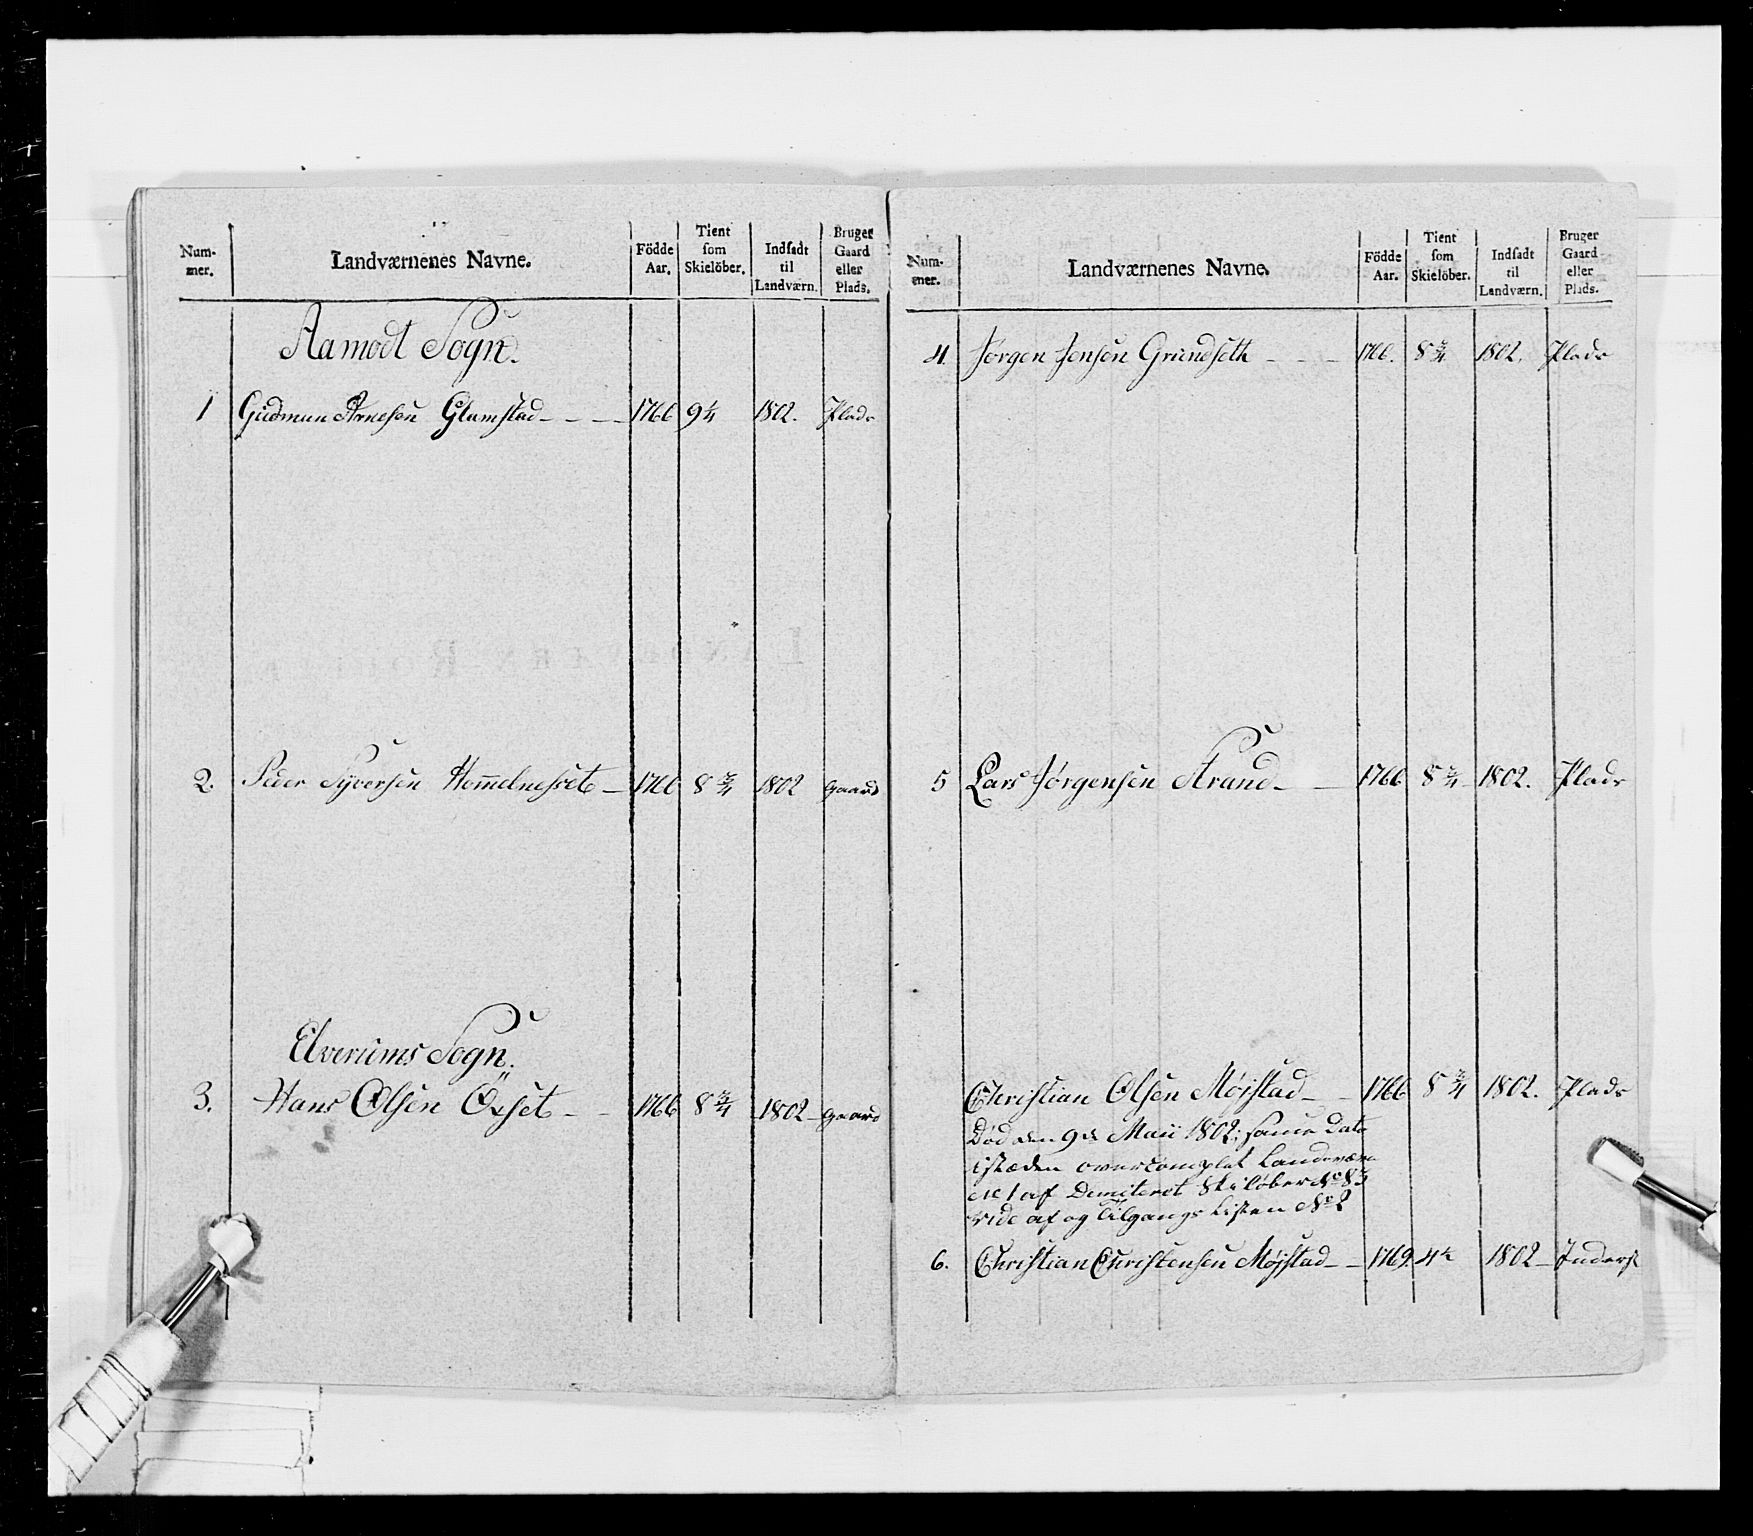 Num-
mer.
Landværnenes Navne.
Födde
Aar.
Tient
som
Skielöber.
Indsadt
til
Landværn.
Bruger
Gaard
eller
Plads.
Aamodt Sogn.
1 Gudmun Arnesen Glamstad - - - 1766 9¼ 1802. Plads
2. Peder Syversen Hom̅elnesset - 1766 8¾ 1802 gaard
Elverums Sogn.
3. Hans Olsen Oxset - - 1766 8¾ 1802 - gaard
Num-
mer.
Landværnenes Navne.
Födde
Aar.
Tient
som
Skielöber.
Indsadt
til
Landværn.
Bruger
Gaard
eller
Plads.
4. Jørgen Jensen Grundseth - - - 1766. 8¾ 1802. Plads
5 Lars Jørgensen Strand - - 1766 8¾ - 1802. Plads
Christian Olsen Møistad - - 1766 8¾ 1802. Plads
Død den 9de Maii 1802; samme Dato
istæden overcomplet Landværn
No 1 af Demiteret Skiløber No 83
vide af og Tilgangs Listen No 2
6. Christian Christensen Møistad - - 1769. 4 1802 - Inderst